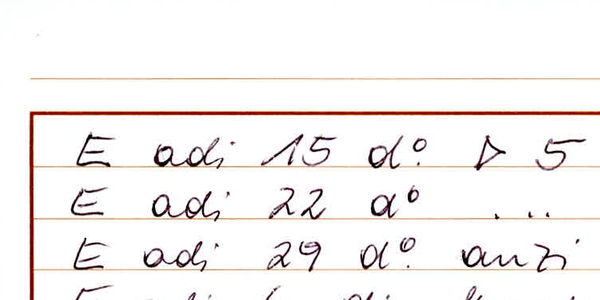 E adi 15 d°. ▷ 5
E adi 22 d° ...
E adi 29 d°. anzi
E adi